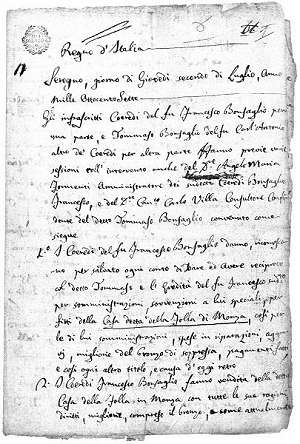 Regno d'Italia
Seregno, giorno di Giovedì secondo di Luglio, Anno
Mille Ottocento Sette
Gli infrascritti Coeredi del fu Francesco Bonsaglio per
una parte e Tommaso Bonsaglio del fu Carl'Antonio
altro de' Coeredi per altra parte
sessioni coll'intervento anche del Angelo Maria
Amministratore dei Coeredi Bonsaglio
Francesco, e del Carlo Villa Consultore
dente del detto Tommaso Bonsaglio convenuto come
segue
1.° I Coeredi del fu Francesco Bonsaglio danno,
per saldato ogni conto di Dare ed Avere reciproco
col detto Tommaso e la Eredità del fu Francesco
per somministrazioni, sovvenzioni a lui speciali, per
fitti della Casa detta della Jolla di Monza, così per
le di lui somministrazioni, spese in riparazioni,
migliorie del bronzo di soppressa, pagamenti fatti
e così ogni altro titolo, e causa d'oggi retro
2.° I Coeredi Francesco Bonsaglio fanno vendita della detta
Casa della Jolla in Monza con tutte le sue ragioni
diritti, migliorie, compreso il bronzo, e